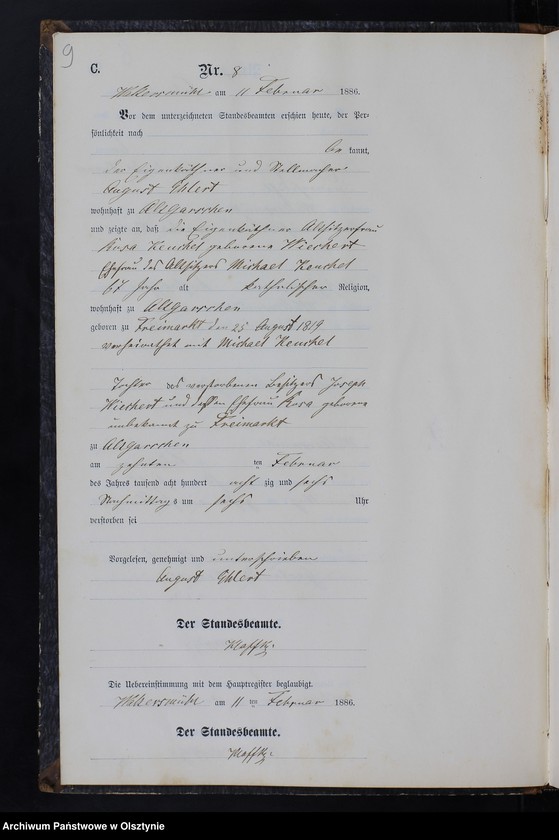 9
C.
Nr. 8
am 11 Februar 1886.
Vor dem unterzeichneten Standesbeamten erschien heute, der Per-
sönlichkeit nach
be kannt,
der Eigenkäthner und Stellmacher
August Ehlert
wohnhaft zu Altgarschen
und zeigte an, daß die Altsitzerfrau
Rosa geborene Wiechert
Ehefrau des Altsitzers Michael
67 Jahr alt katholischer Religion,
wohnhaft zu Altgarschen
geboren zu Freimarkt den 25 August 1819
verheirathet mit Michael
Tochter des verstorbenen Besitzers Joseph
Wiechert und dessen Ehefrau Rosa geborene
unbekannt zu Freimarkt
zu Altgarschen
am zehnten ten Februar
des Jahres tausend acht hundert acht zig und sechs
Nachmittags um sechs Uhr
verstorben sei
Vorgelesen, genehmigt und unterschrieben
August Ehlert
Der Standesbeamte.
Die Uebereinstimmung mit dem Hauptregister beglaubigt.
am 11 ten Februar 1886.
Der Standesbeamte.
Archiwum Państwowe w Olsztynie